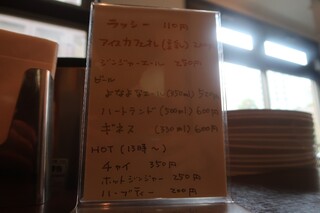 ラッシー
アイスカフェオレ
ジンジャーエール 250円
ビール
よなよなエール(350ml) 500円
ハートランド(500ml) 600円
ギネス (330ml) 600円
HOT (15時〜)
チャイ 350円
ホットジンジャー 250円
ティー 200円